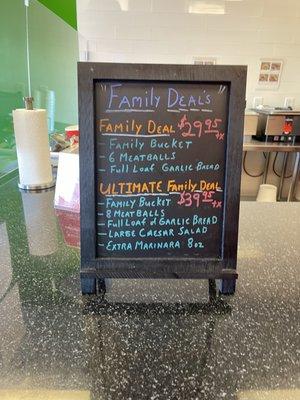 "Family Deal's"
Family Deal $29.95 +x
- Family Bucket
- 6 Meatballs
- Full Loaf Garlic Bread
Ultimate Family Deal
$39.95 +x
- Family Bucket
- 8 Meatballs
- Full Loaf of Garlic Bread
- Large Caesar Salad
- Extra Marinara 8oz